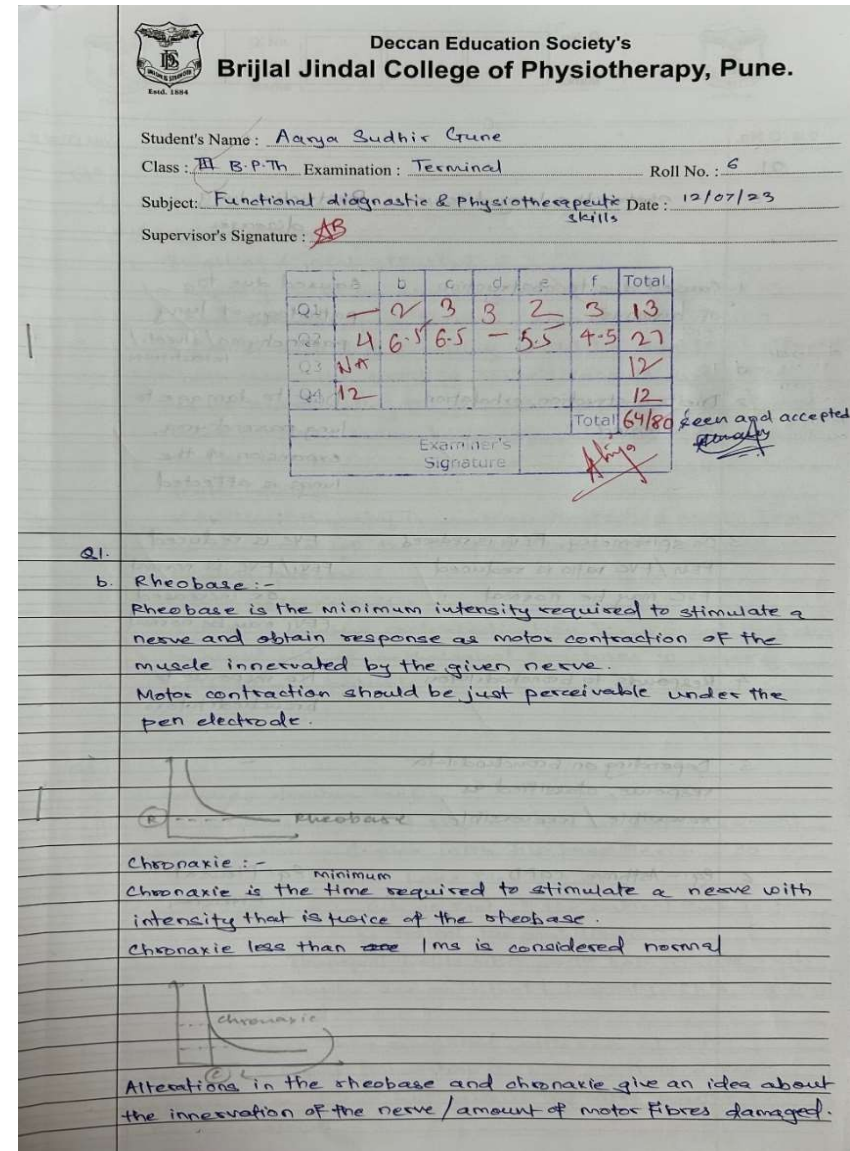 Deccan Education Society's
Brijlal Jindal College of Physiotherapy, Pune.
Estd. 1884
Student's Name : Aarya Sudhir Gune
Class : III B.P.Th Examination : Terminal Roll No. : 6
Subject: Functional diagnostic & Physiotherapeutic skills Date : 12/07/23
Supervisor's Signature : AB
a b c d e f Total
Q1 — 2 3 3 2 3 13
Q2 4 6.5 6.5 — 5.5 4.5 27
Q3 NA 12
Q4 12 12
Total 64/80 seen and accepted
Examiner's
Signature
Q1.
b. Rheobase :-
Rheobase is the minimum intensity required to stimulate a
nerve and obtain response as motor contraction of the
muscle innervated by the given nerve.
Motor contraction should be just perceivable under the
pen electrode.
R Rheobase
Chronaxie :-
Chronaxie is the minimum time required to stimulate a nerve with
intensity that is twice of the rheobase.
Chronaxie less than 1ms is considered normal
Chronaxie
C
Alterations in the rheobase and chronaxie give an idea about
the innervation of the nerve / amount of motor fibres damaged.